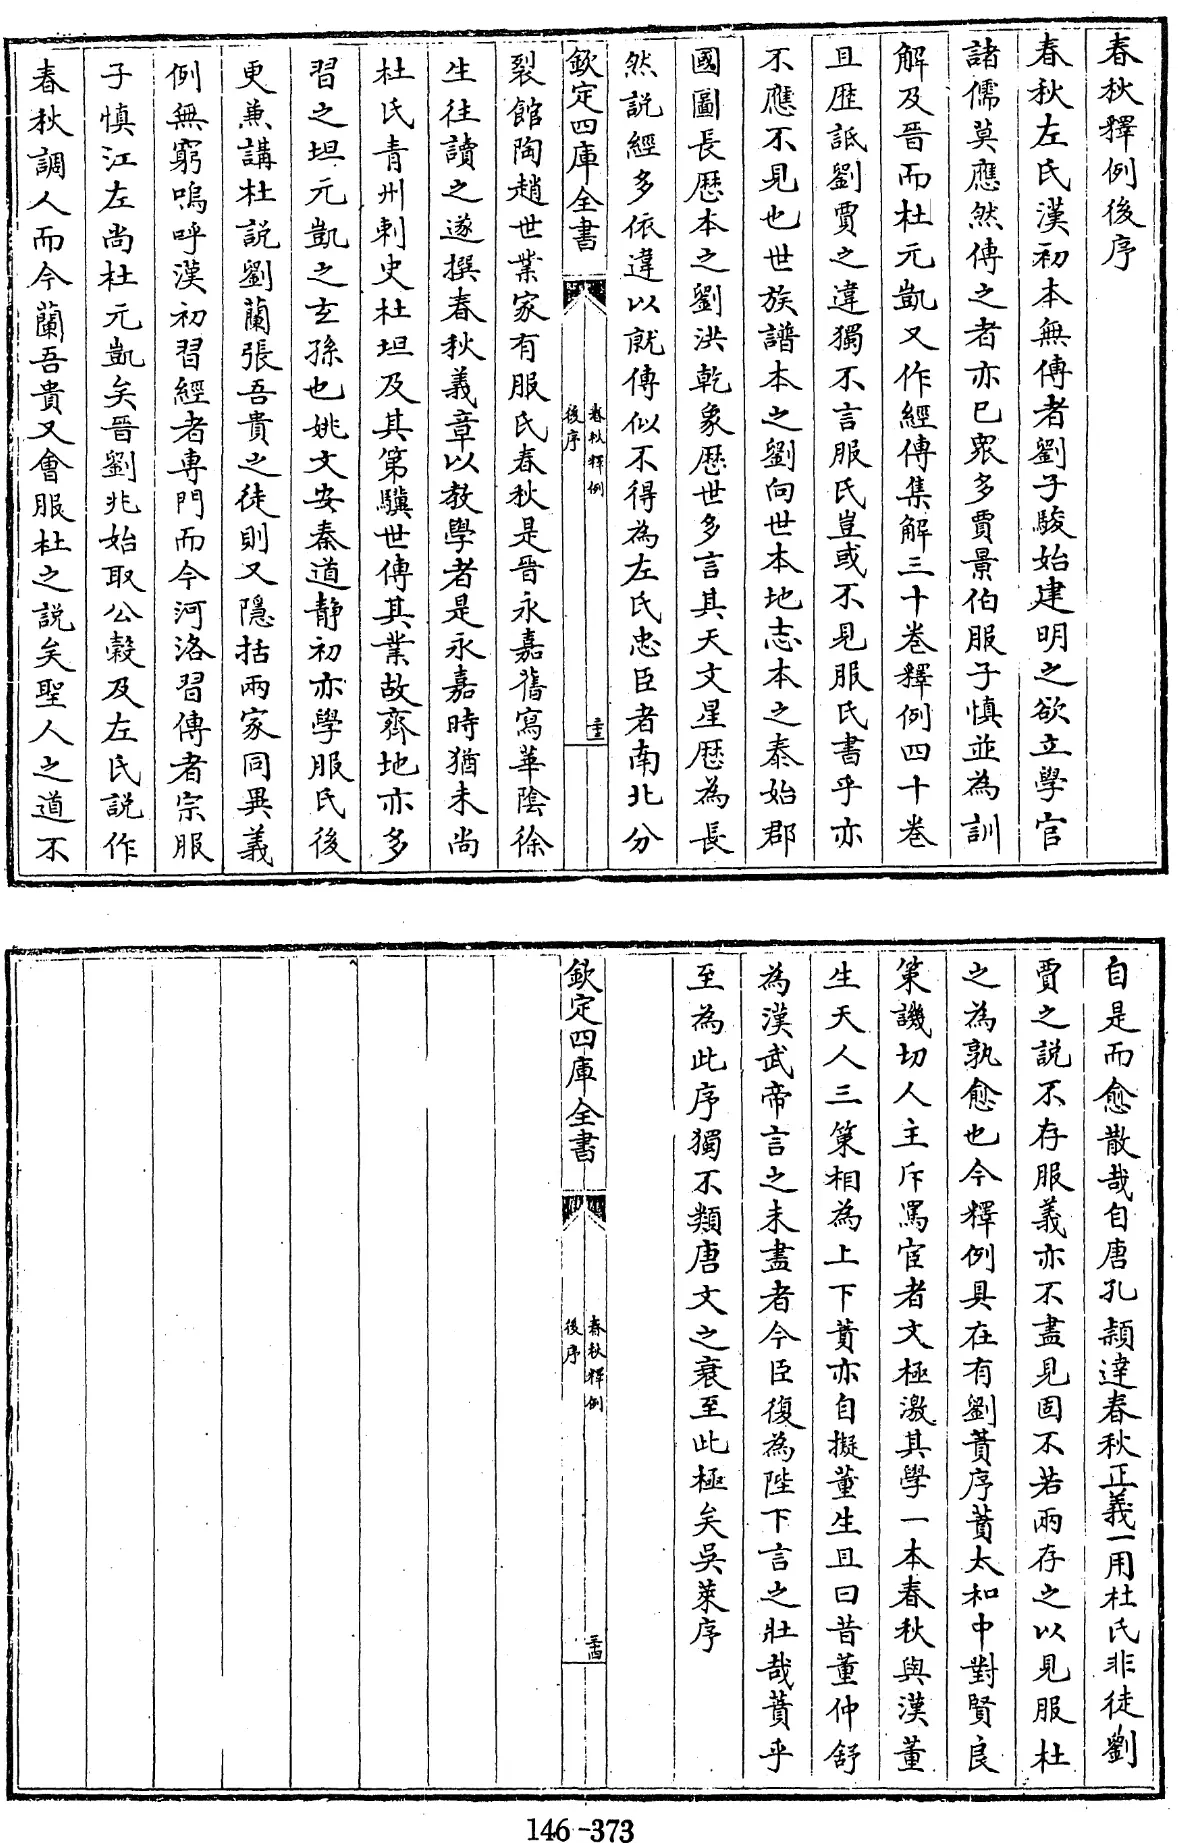 春秋釋例後序
春秋左氏漢初本無傳者劉子駿始建明之欲立學官
諸儒莫應然傳之者亦已衆多賈景伯服子慎並為訓
解及晉而杜元凱又作經傳集解三十卷釋例四十卷
且歴詆劉賈之違獨不言服氏豈或不見服氏書乎亦
不應不見也世族譜本之劉向世本地志本之泰始郡
國圖長歴本之劉洪乾象歴世多言其天文星歴為長
然説經多依違以就傳似不得為左氏忠臣者南北分
欽定四庫全書
春秋釋例
後序
裂館陶趙世業家有服氏春秋是晉永嘉舊寫華陰徐
生往讀之遂撰春秋義章以教學者是永嘉時猶未尚
杜氏青州刺史杜坦及其第驥世傳其業故齊地亦多
習之坦元凱之玄孫也姚文安秦道靜初亦學服氏後
更兼講杜説劉蘭張吾貴之徒則又隱括兩家同異義
例無窮嗚呼漢初習經者専門而今河洛習傳者宗服
子慎江左尚杜元凱矣晉劉兆始取公穀及左氏説作
春秋調人而今蘭吾貴又會服杜之説矣聖人之道不
自是而愈散哉自唐孔頴達春秋正義一用杜氏非徒劉
賈之説不存服義亦不盡見固不若兩存之以見服杜
之為孰愈也今釋例具在有劉蕡序蕡太和中對賢良
策譏切人主斥罵宦者文極激其學一本春秋與漢董
生天人三策相為上下蕡亦自擬董生且曰昔董仲舒
為漢武帝言之未盡者今臣復為陛下言之壯哉蕡乎
至為此序獨不類唐文之衰至此極矣吳萊序
欽定四庫全書
春秋釋例
後序
146-373